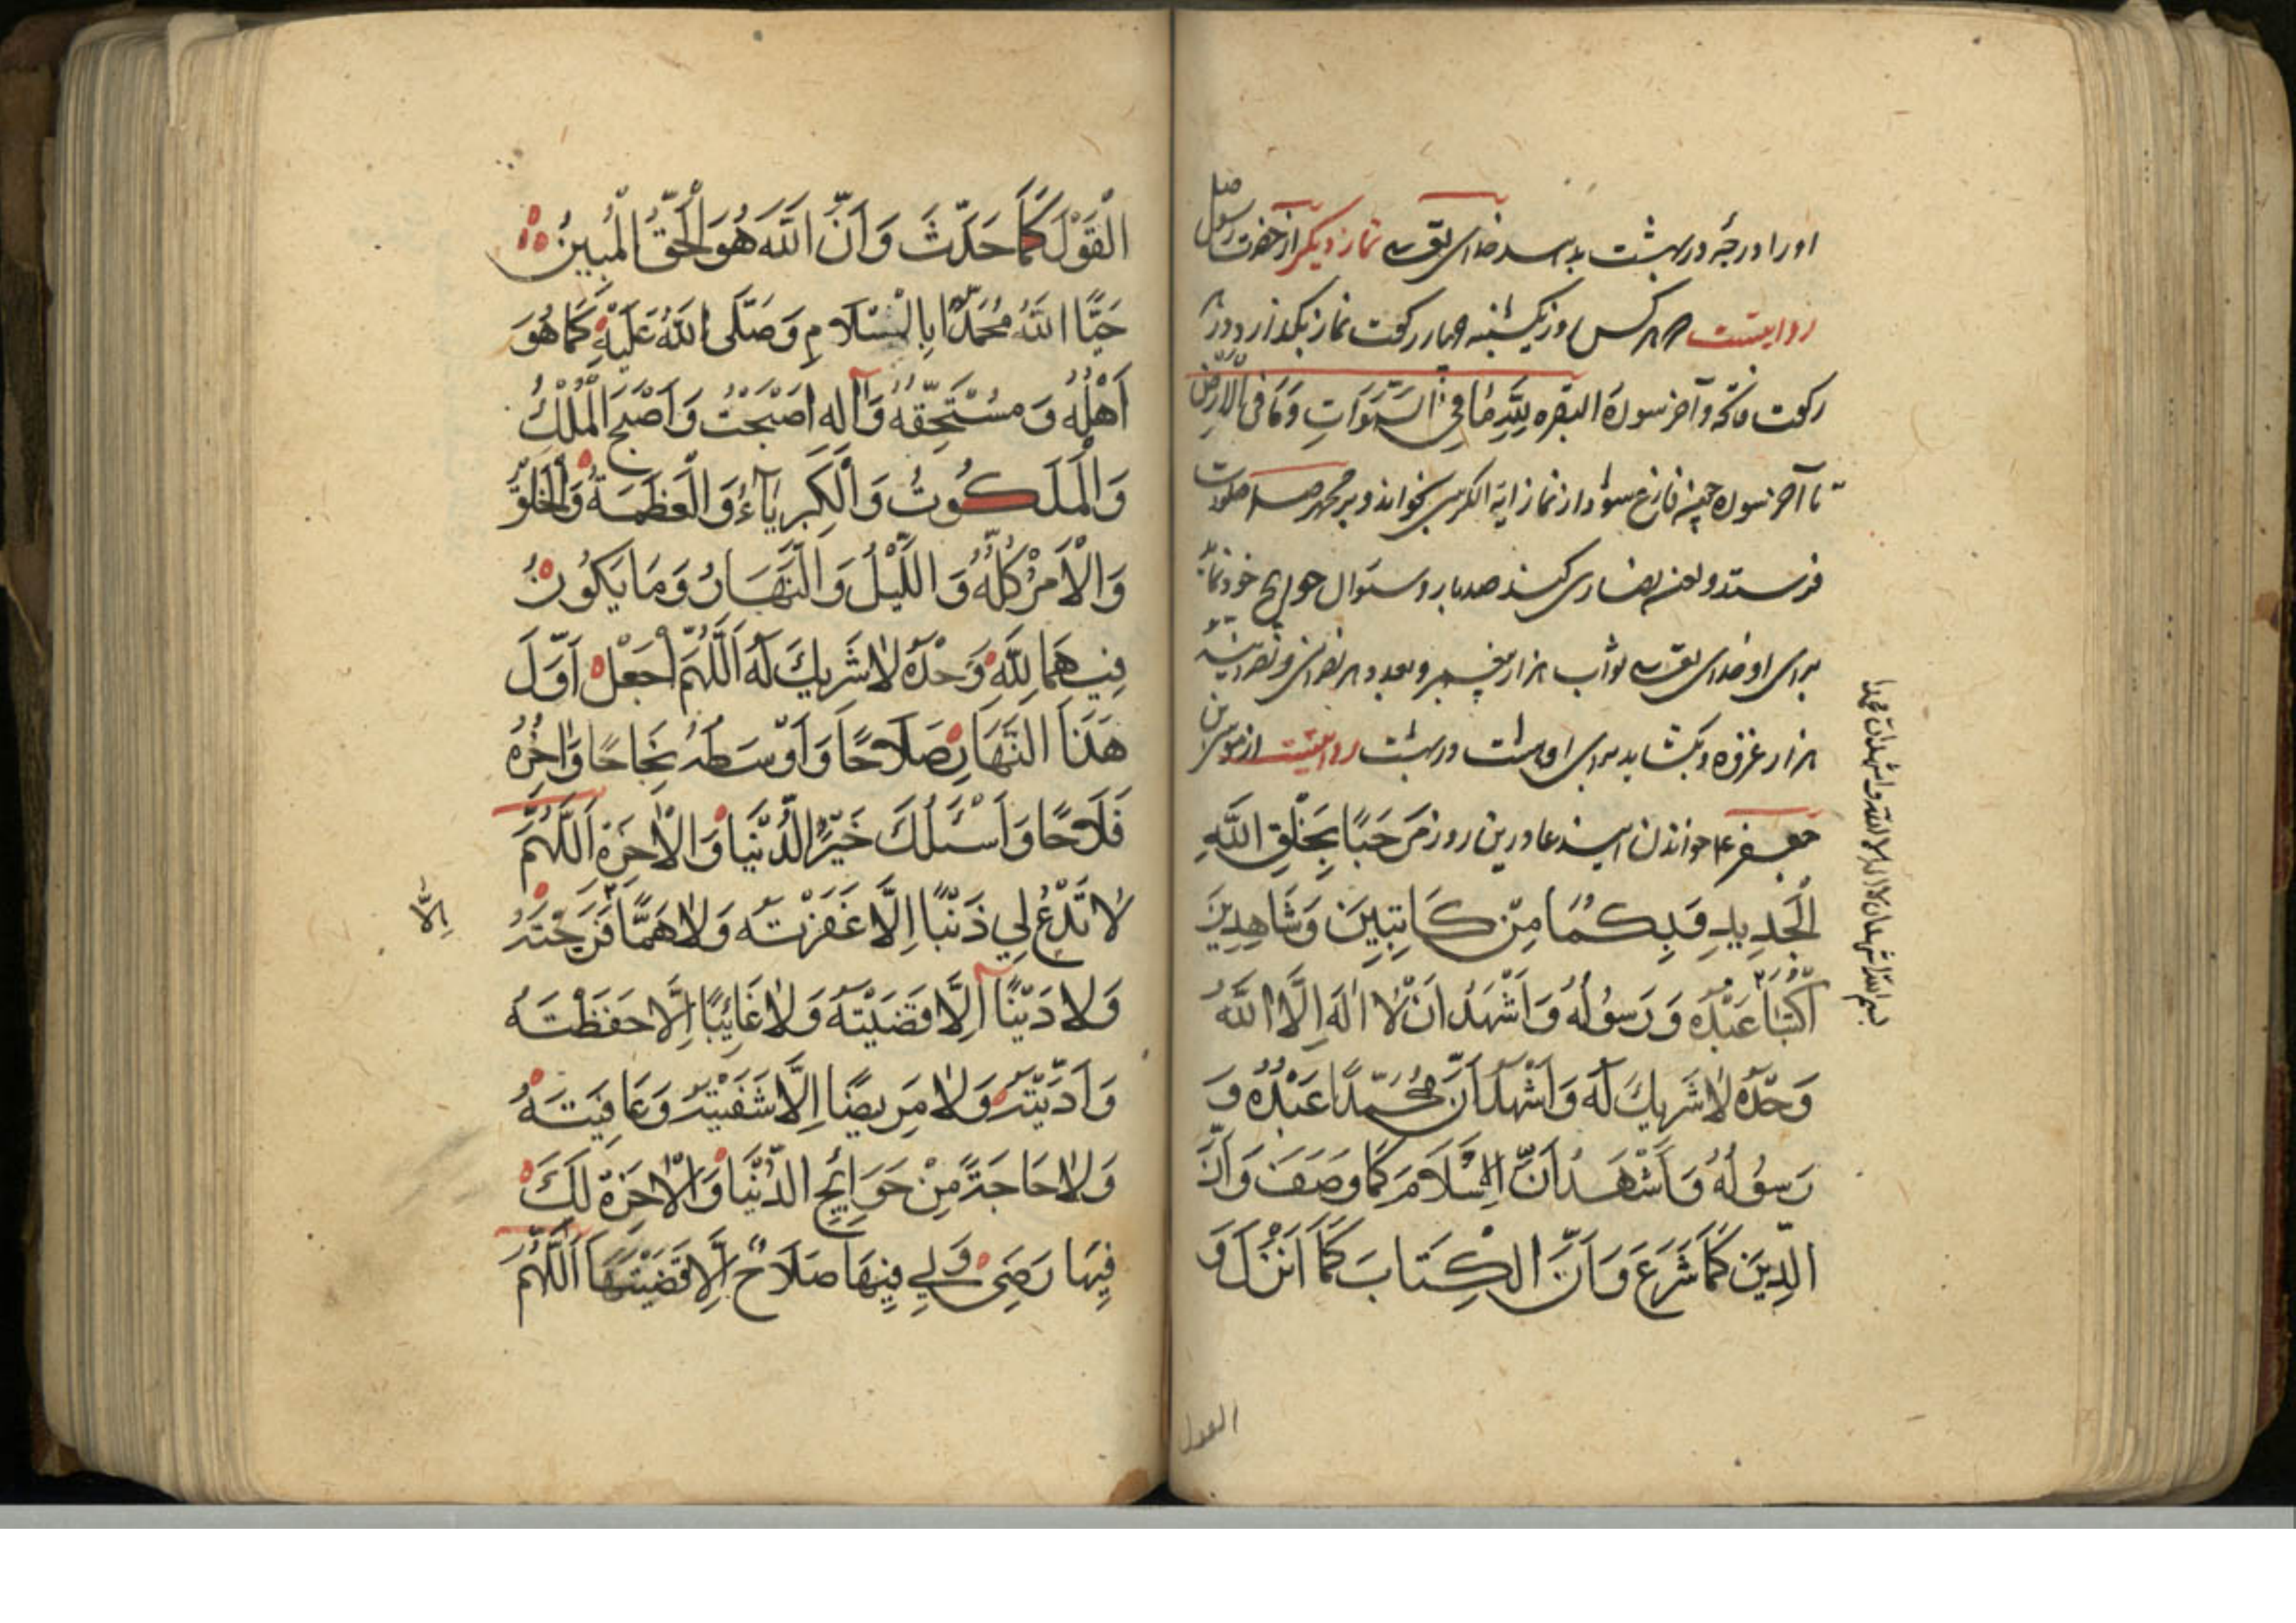 او را درجۀ در بهشت بدهد خدای تعالی نماز دیگر از حضرت رسول صلی
روایتست هر کس روز یکشنبه چهار رکعت نماز بگذارد در هر
رکعت فاتحه و آخر سورة البقره لِلَّهِ مَا فِي السَّمَوَاتِ وَمَا فِي الْاَرْضِ
تا آخر سوره چون فارغ شود از نماز ایة الکرسی بخواند و بر محمد ص صلوات
فرستد و لعنه نصاری کند صد بار و سئوال حوایج خود نماید
برای او خدای تعالی ثواب هزار پیغمبر و بعدد هر نصرانی و نصرانیه
هزار غزوه و بگشاید برای او هشت در بهشت روایتست از موسی بن
جعفر ع خواندن این دعا درین روز مَرْحَبًا بِخَلْقِ اللَّهِ
الْجَدِيدِ وَبِكُمَا مِنْ كَاتِبَيْنِ وَشَاهِدَيْنِ
اُكْتُبَا عَبْدُهُ وَرَسُولُهُ وَاَشْهَدُ اَنْ لَا اِلَهَ اِلَّا اللَّهُ
وَحْدَهُ لَا شَرِيكَ لَهُ وَاَشْهَدُ اَنَّ مُحَمَّدًا عَبْدُهُ وَ
رَسُولُهُ وَاَشْهَدُ اَنَّ الْاِسْلَامَ كَمَا وَصَفَ وَاَنَّ
الدِّينَ كَمَا شَرَعَ وَاَنَّ الْكِتَابَ كَمَا اَنْزَلَ وَ
القول
بسم الله اشهد ان لا اله الا الله و اشهد ان محمدا
الْقَوْلَ كَمَا حَدَّثَ وَاَنَّ اللَّهَ هُوَ الْحَقُّ الْمُبِينُ
حَيَّا اللَّهُ مُحَمَّدًا بِالسَّلَامِ وَصَلَّى اللَّهُ عَلَيْهِ كَمَا هُوَ
اَهْلُهُ وَمُسْتَحِقُّهُ وَآلِهِ اَصْبَحْتُ وَاَصْبَحَ الْمُلْكُ
وَالْمَلَكُوتُ وَالْكِبْرِيَآءُ وَالْعَظَمَةُ وَالْخَلْقُ
وَالْاَمْرُ كُلُّهُ وَاللَّيْلُ وَالنَّهَارُ وَمَا يَكُونُ
فِيهِمَا لِلَّهِ وَحْدَهُ لَا شَرِيكَ لَهُ اَللَّهُمَّ اجْعَلْ اَوَّلَ
هَذَا النَّهَارِ صَلَاحًا وَاَوْسَطَهُ نَجَاحًا وَاٰخِرَهُ
فَلَاحًا وَاَسْئَلُكَ خَيْرَ الدُّنْيَا وَالْاٰخِرَةِ اَللَّهُمَّ
لَا تَدَعْ لِي ذَنْبًا اِلَّا غَفَرْتَهُ وَلَا هَمًّا فَرَّجْتَهُ
اِلَّا
وَلَا دَيْنًا اِلَّا قَضَيْتَهُ وَلَا غَائِبًا اِلَّا حَفِظْتَهُ
وَاَدَّيْتَهُ وَلَا مَرِيضًا اِلَّا شَفَيْتَهُ وَعَافَيْتَهُ
وَلَا حَاجَةً مِنْ حَوَائِجِ الدُّنْيَا وَالْاٰخِرَةِ لَكَ
فِيهَا رِضًى وَلِي فِيهَا صَلَاحٌ اِلَّا قَضَيْتَهَا اَللَّهُمَّ